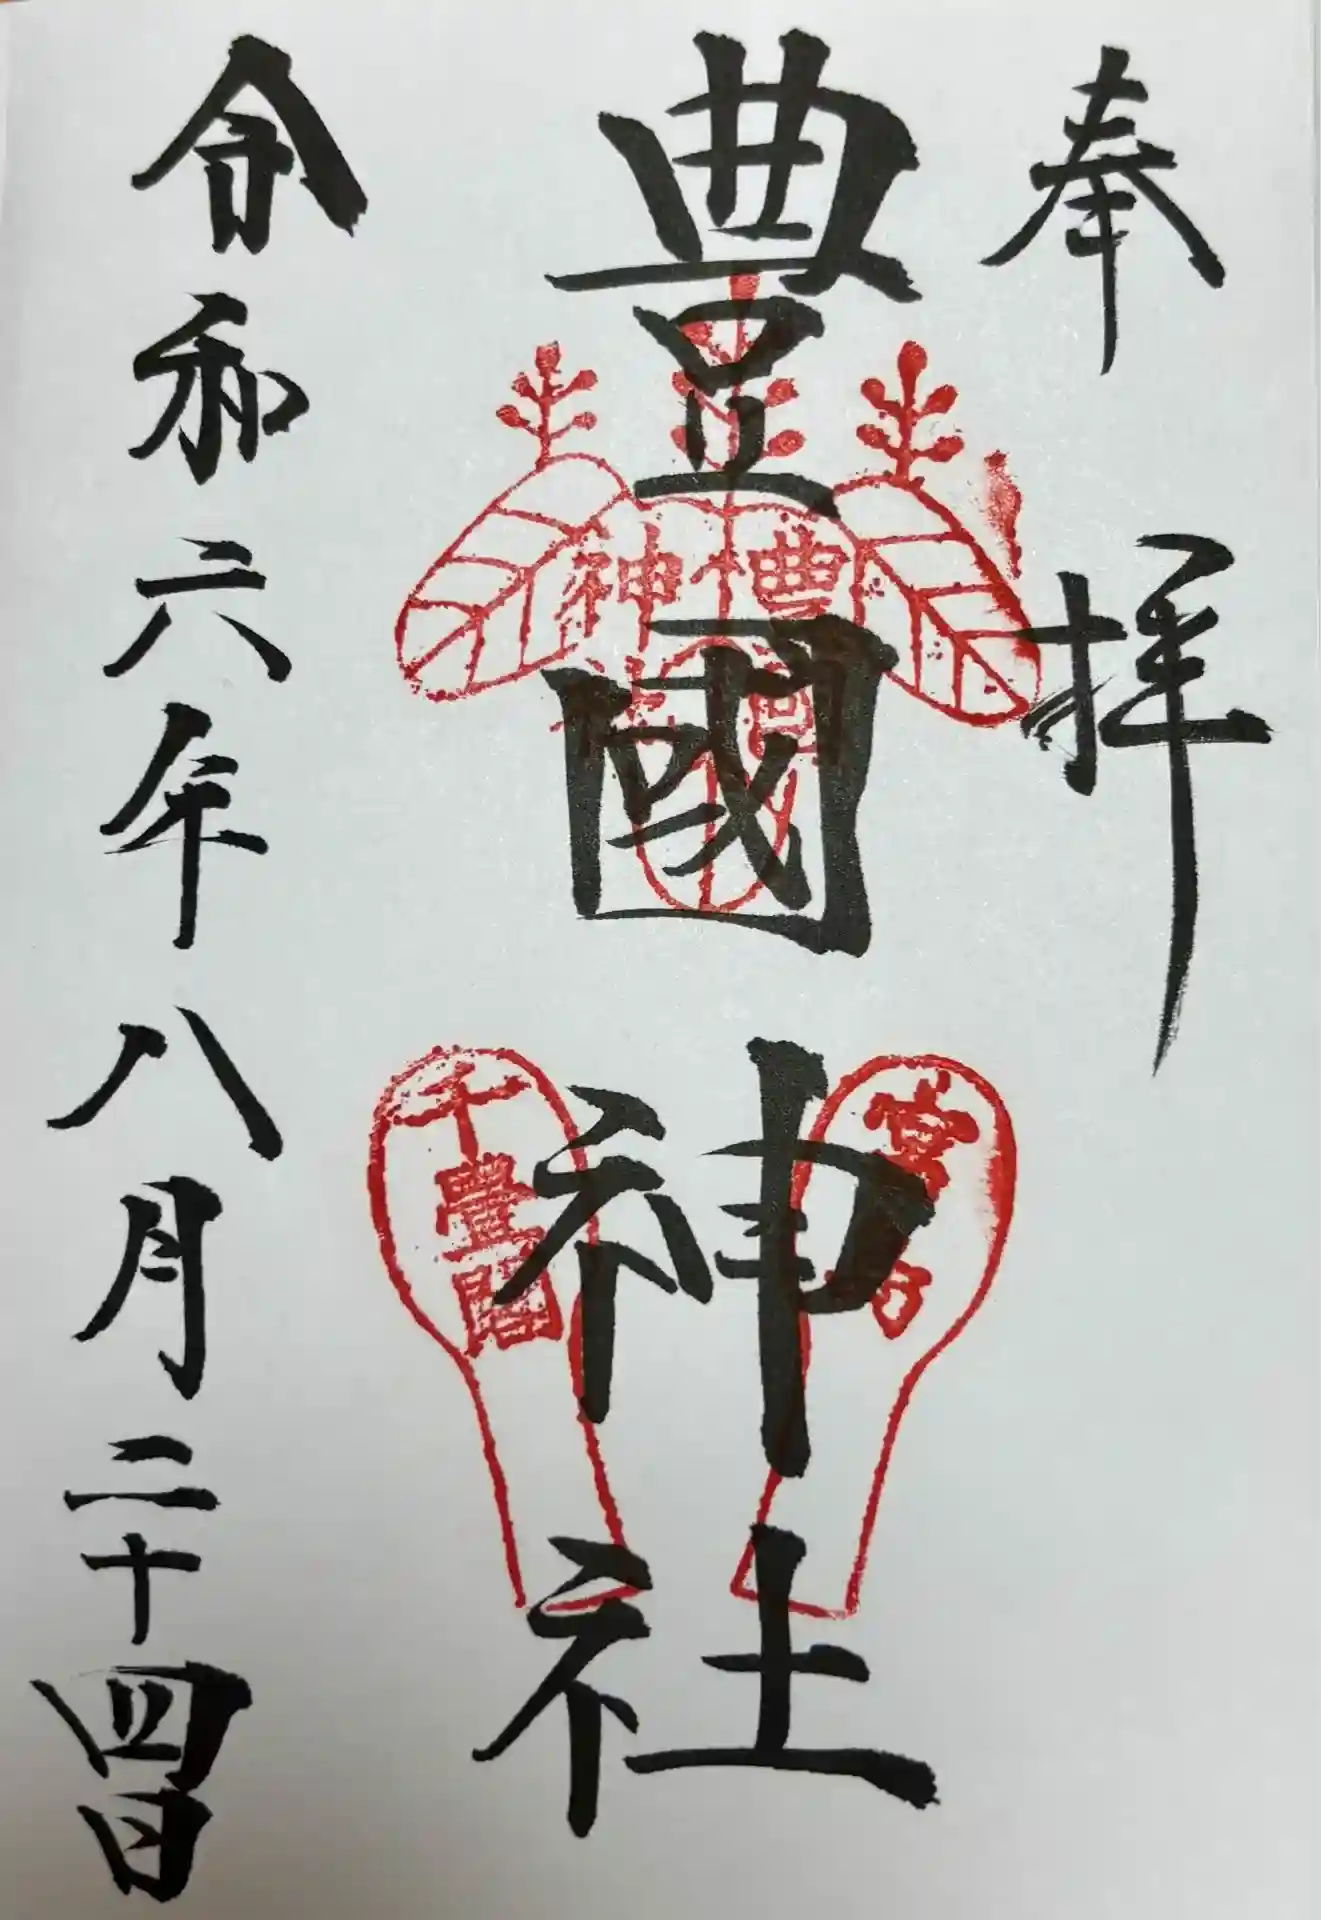 奉拝
豊國神社
令和六年八月二十四日
豊国
神社
宮
千畳閣